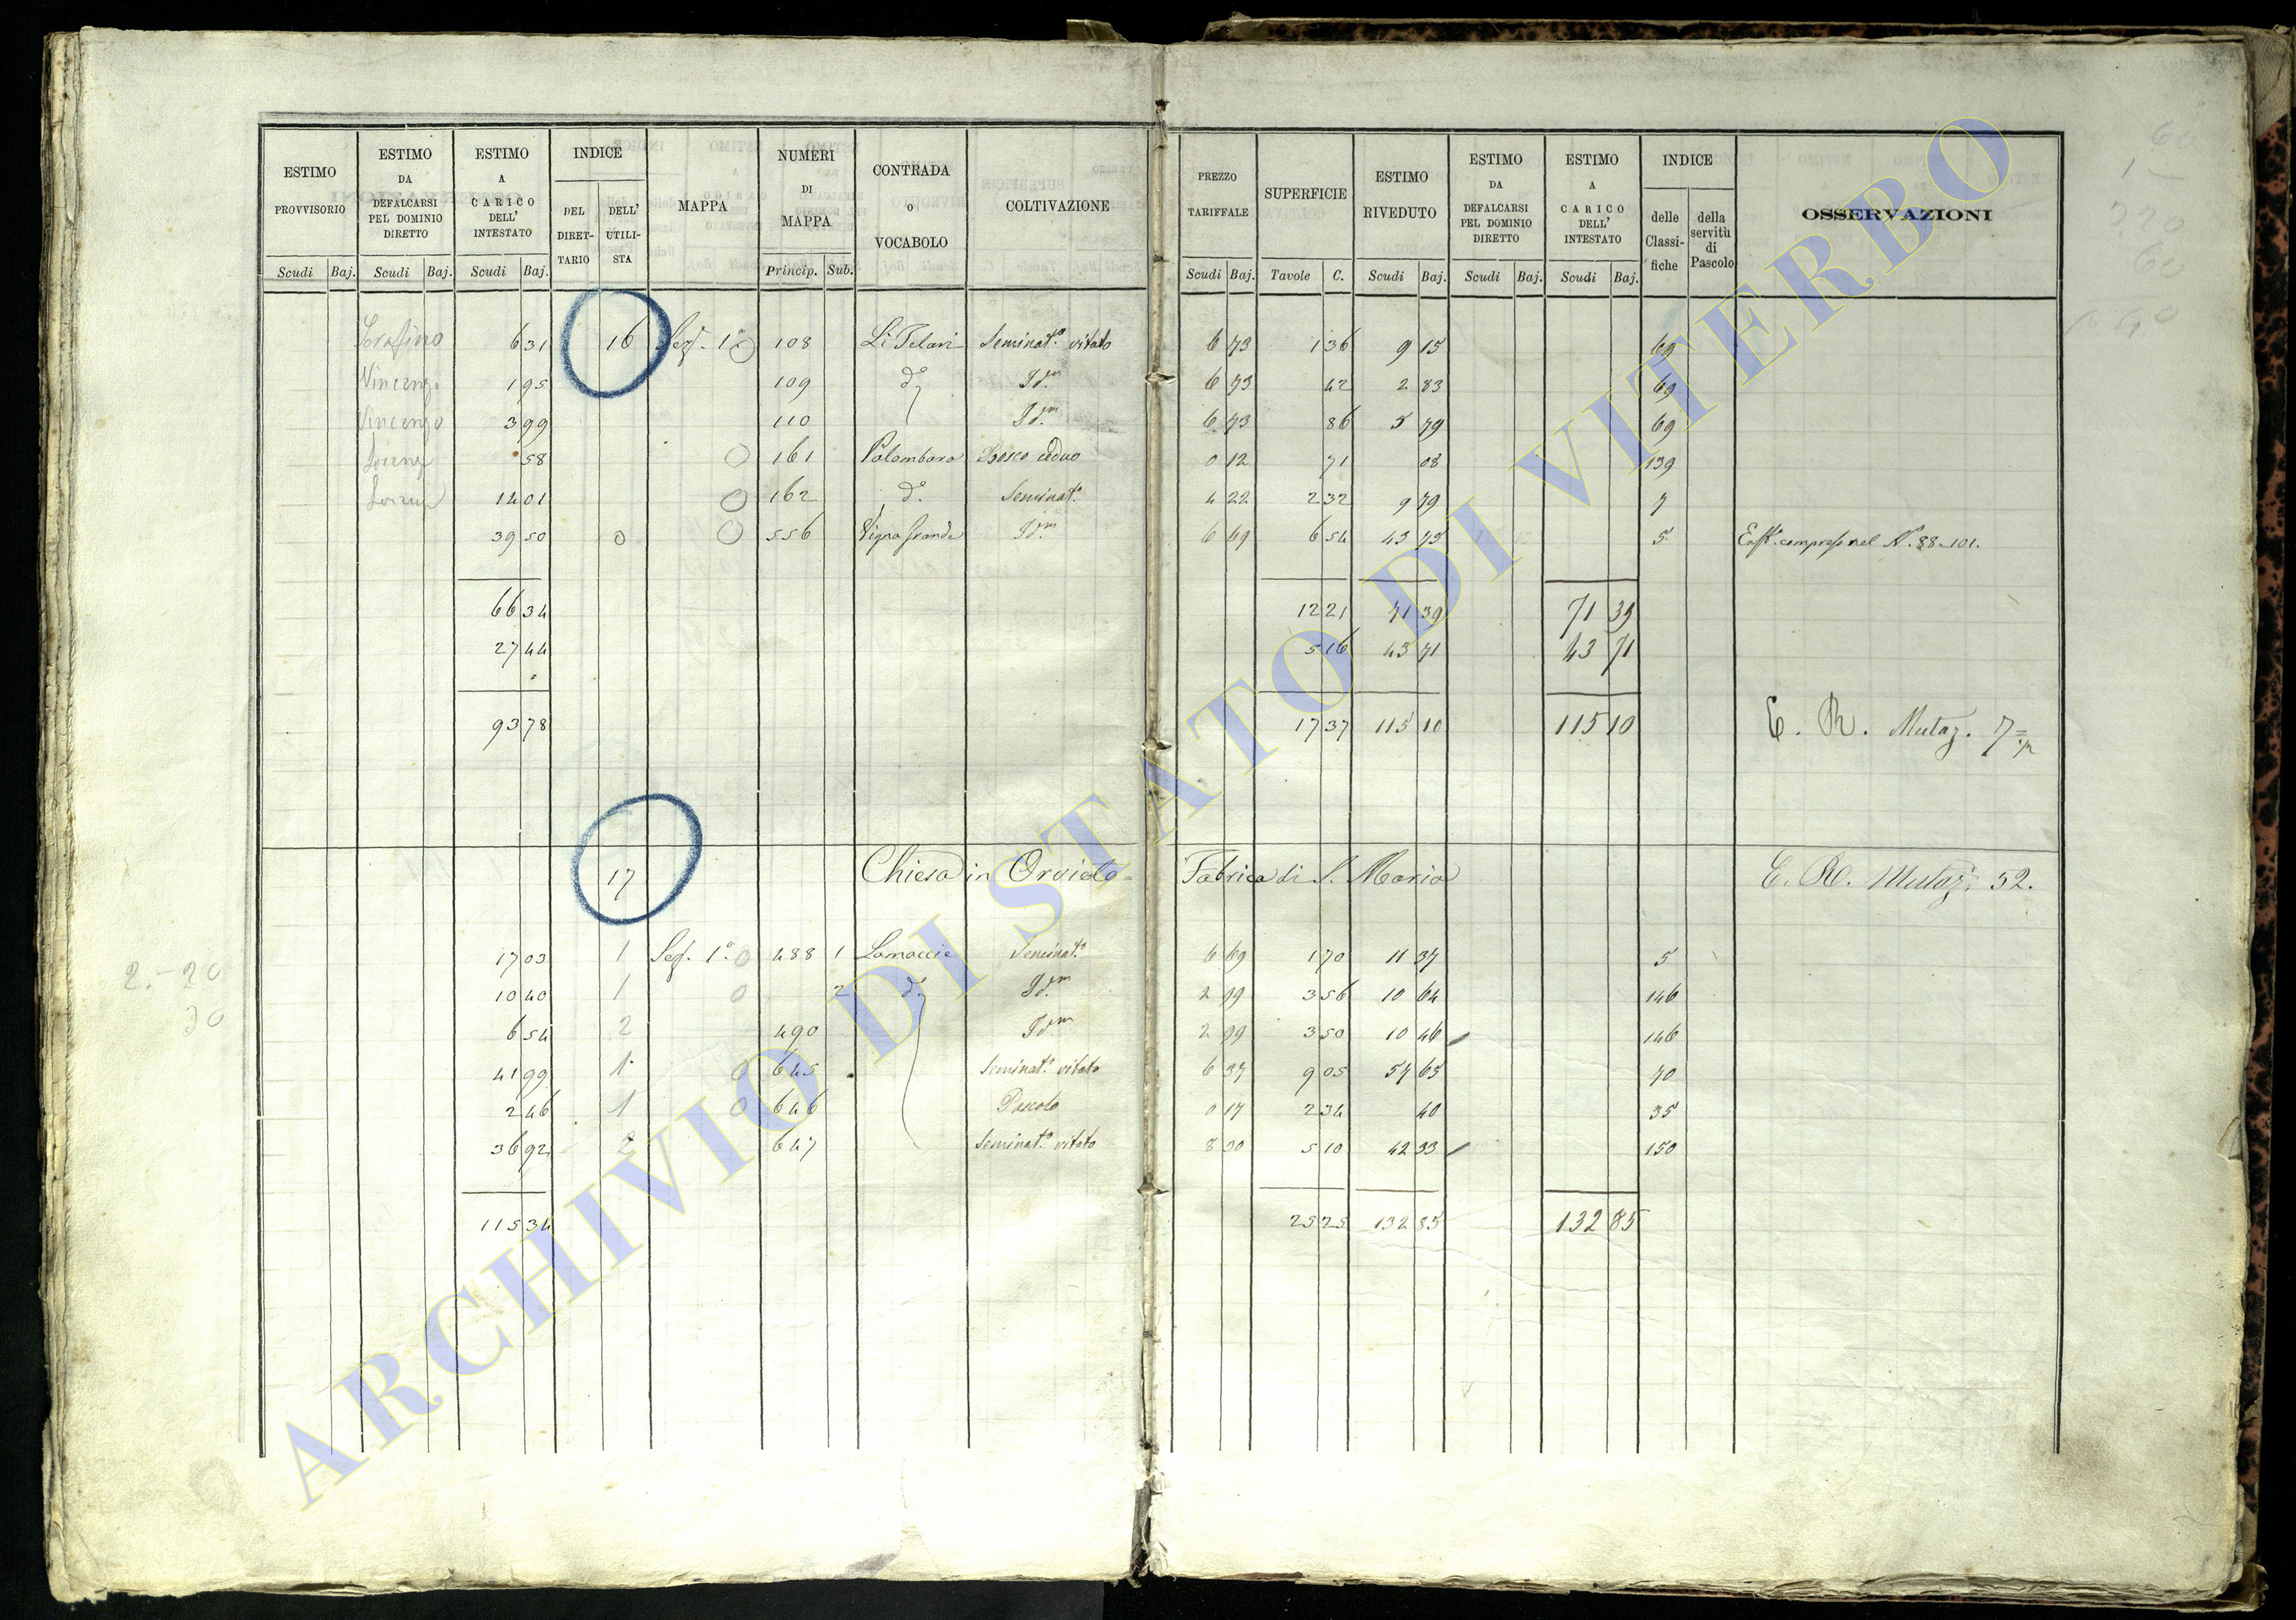 ESTIMO PROVVISORIO | ESTIMO DA DEFALCARSI PEL DOMINIO DIRETTO | ESTIMO A CARICO DELL' INTESTATO | INDICE DEL DIRET-TARIO | DELL' UTILI-STA | MAPPA | NUMERI DI MAPPA | CONTRADA O VOCABOLO | COLTIVAZIONE | PREZZO TARIFFALE | SUPERFICIE | ESTIMO RIVEDUTO | ESTIMO DA DEFALCARSI PEL DOMINIO DIRETTO | ESTIMO A CARICO DELL' INTESTATO | INDICE delle Classi-fiche | della servitù di Pascolo | OSSERVAZIONI
Scudi | Baj. | Scudi | Baj. | Scudi | Baj. | Princip. | Sub. | Scudi | Baj. | Tavole | C. | Scudi | Baj. | Scudi | Baj. | Scudi | Baj.
Serafino 6 31 16 Sez. 1ª 108 Li Telari Seminat.º vitato 6 73 1 36 9 15 69
Vincenzo 1 95 109 dº Idm 6 73 42 2 83 69
Vincenzo 3 99 110 Idm 6 73 86 5 79 69
58 161 Palombara Bosco ceduo 0 12 71 08 139
14 01 162 dº Seminat.º 4 22 2 32 9 79 7
39 50 0 556 Vigna Grande Idm 6 69 6 54 43 75 5 N. 88-101.
66 34 12 21 71 39 71 39
27 44 5 16 43 71 43 71
93 78 17 37 115 10 115 10 E. R. Mutaz. 7
17 Chiesa in Orvieto = Fabrica di S. Maria E. R. Mutaz. 32.
17 03 1 Sez. 1ª 488 1 Lamaccie Seminat.º 6 69 1 70 11 37 5
2.-20
10 40 1 2 dº Idm 2 99 3 56 10 64 146
30
6 54 2 490 Idm 2 99 3 50 10 46 146
41 99 1 645 Seminat.º vitato 6 37 9 05 57 65 70
2 46 1 646 Pascolo 0 17 2 34 40 35
36 92 2 647 Seminat.º vitato 8 30 5 10 42 33 150
115 34 25 25 132 85 132 85
ARCHIVIO DI STATO DI VITERBO